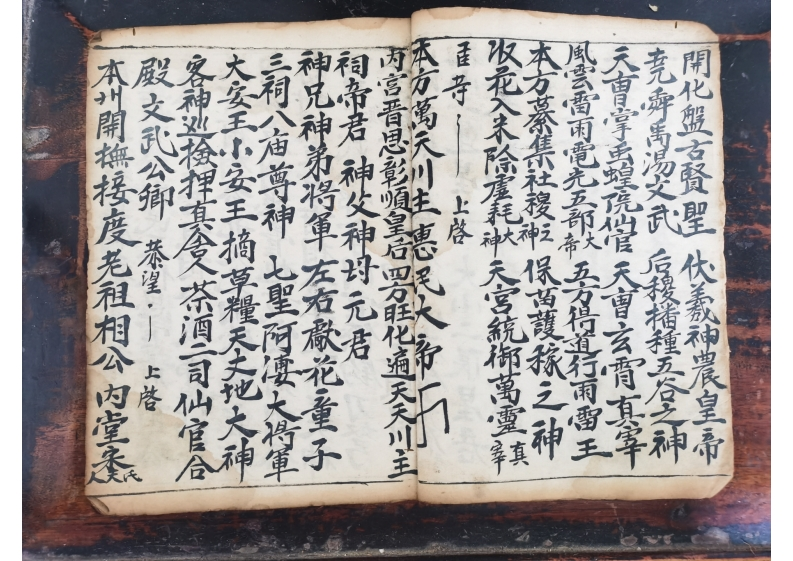 開化盤古賢聖 伏羲神農皇帝
堯舜禹湯文武 后稷播種五谷之神
天曹掌禹蝗院仙官 天曹玄霄真宰
風雲雷雨電光五部大帝 五方得道行雨雷王
本方募集社稷之神 保苗護稼之神
收花入米除虛耗大神 天宮統御萬靈真宰
臣寺 上啓
本方萬天川主惠民大帝
內宮晋思彰順皇后 四方旺化遍天天川主
祠帝君 神父神母元君
神兄神弟將軍 左右献花童子
三祠八庙尊神 七聖阿婆大將軍
大安王小安王 摘草糧天丈地大神
客神巡捡押真舍人 茶酒二司仙官合
殿文武公卿 恭望 上啓
本州開撫接度老祖相公 內堂夫人